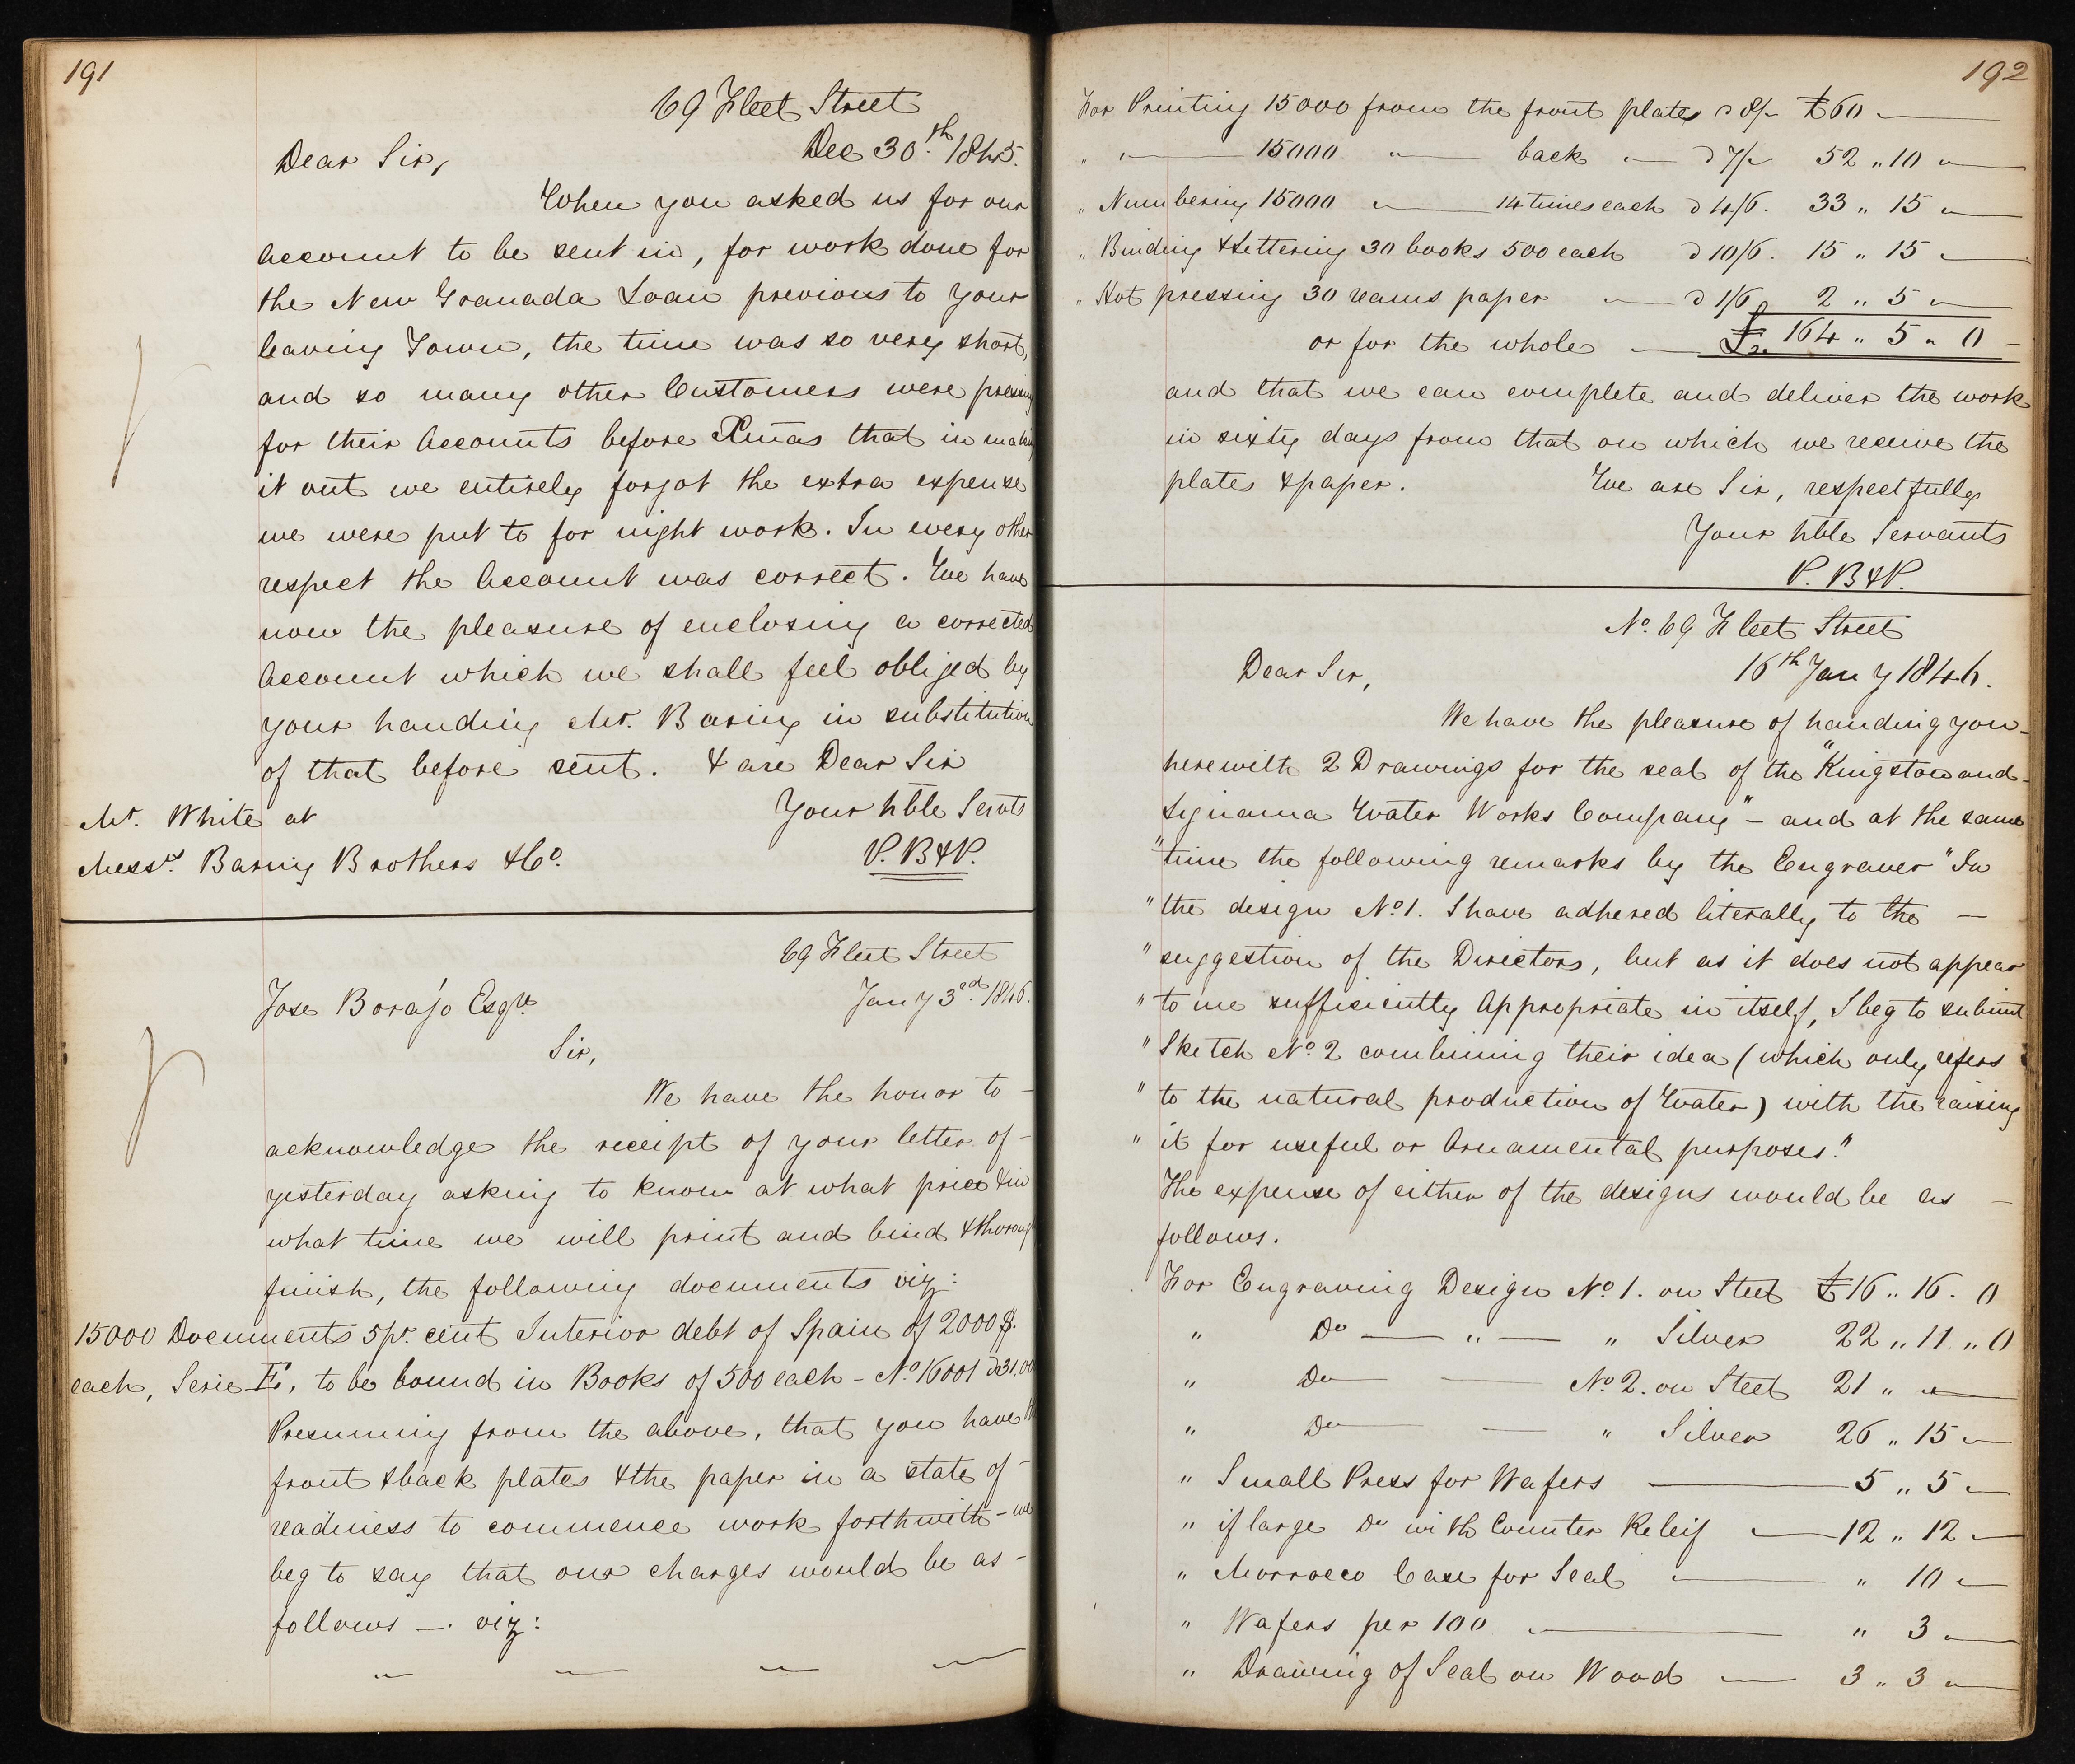 191
69 Fleet Street
Dec 30th. 1845.
Dear Sir,
When you asked us for our
account to be sent in, for work done for
the New Granada Loan previous to your
leaving Town, the time was so very short,
and so many other Customers were pressing
for their Accounts before Xmas that in making
it out we entirely forgot the extra expense
we were put to for night work. In every other
respect the Account was correct. We have
now the pleasure of enclosing a corrected
Account which we shall feel obliged by
your handing Mr. Baring in substitution
of that before sent. & are Dear Sir
Your hble Servts
P. B & P.
Mr. White at
Messrs. Baring Brothers & Co.
69 Fleet Street
Jany 3rd. 1846.
Jose Borajo Esqre
Sir,
We have the honor to –
acknowledge the receipt of your letter of –
yesterday asking to know at what price & in
what time we will print and bind & thoroug
finish, the following documents viz:
15000 Documents 5 pr. cent Interior debt of Spain of 2000 $.
each, Serie E, to be bound in Books of 500 each – No. 16001 @ 31,00
Presuming from the above, that you have the
front & back plates & the paper in a state of –
readiness to commence work forthwith – we
beg to say that our charges would be as –
follows —. viz:
192
For Printing 15000 from the front plates @ 8/– £60 —
" — 15000 " — back — @ 7/– 52 " 10 —
" Numbering 15000 — 14 times each @ 4/6. 33 " 15 —
" Binding & Lettering 30 books 500 each @ 10/6. 15 " 15 —
" Hot pressing 30 reams paper — @ 1/6 2 " 5 —
or for the whole — £ 164 " 5 " 0 –
and that we can complete and deliver the work
in sixty days from that on which we receive the
plates & paper. We are Sir, respectfully
Your hble Servants
P. B & P.
No. 69 Fleet Street
16th Jany 1846.
Dear Sir,
We have the pleasure of handing you –
herewith 2 Drawings for the seal of the "Kingston and –
Liguanea Water Works Company" – and at the same
"time the following remarks by the Engraver "In
"the design No. 1. I have adhered literally to the —
"suggestion of the Directors, but as it does not appear
"to me sufficiently Appropriate in itself, I beg to submit
"Sketch No. 2 combining their idea (which only refers
"to the natural production of Water) with the raising
"it for useful or Ornamental purposes."
The expense of either of the designs would be as —
follows.
For Engraving Design No. 1. on Steel £16 .. 16 . 0
" Do — " — " Silver 22 .. 11 .. 0
" Do — — No. 2. on Steel 21 " —
" Do — — " Silver 26 .. 15 —
" Small Press for Wafers — 5 .. 5 —
" if large Do with Counter Releif — 12 " 12 —
" Morroeco Case for Seal — " 10 —
" Wafers per 100 — " 3 —
" Drawing of Seal on Wood — 3 .. 3 —